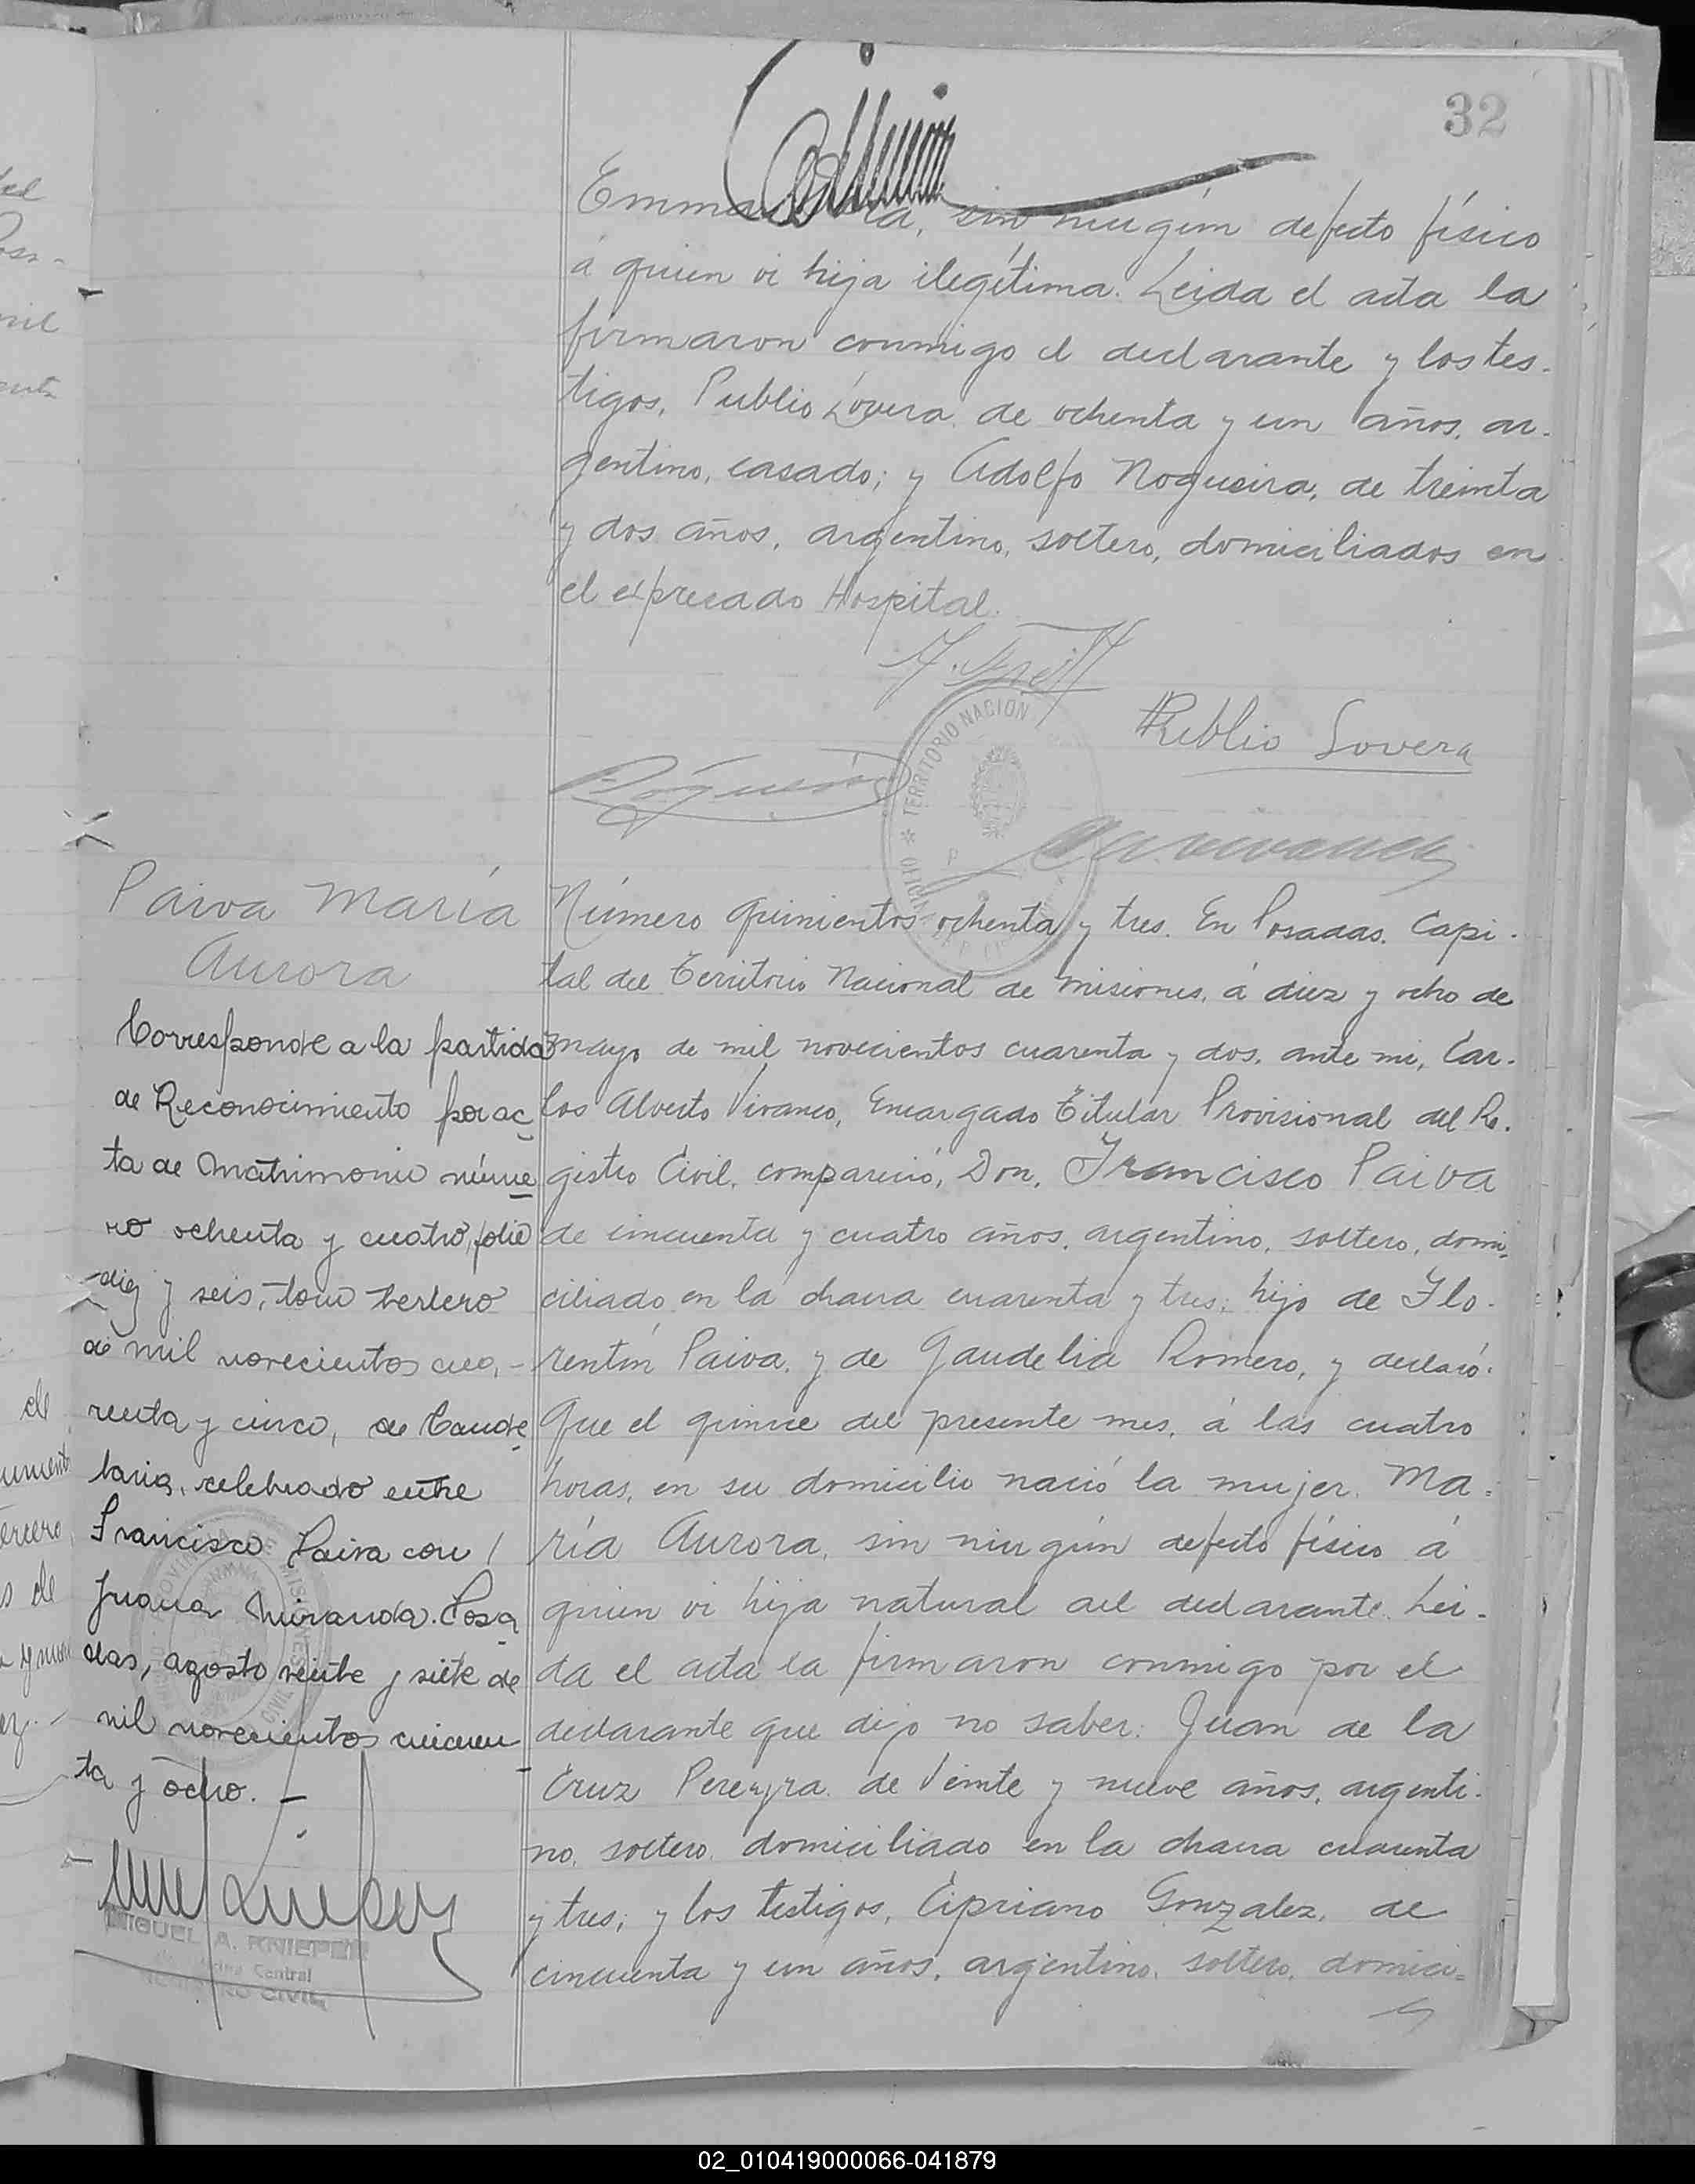 32
Emma sin ningún defecto físico
á quien vi hija ilegítima. Leida el acta la
firmaron conmigo el declarante y los tes-
tigos, Publio Lovera de ochenta y un años, ar-
gentino, casado; y Adolfo Nogueira, de treinta
y dos años, argentino, soltero, domiciliados en
el expresado Hospital.
Publio Lovera
TERRITORIO NACION
Paiva María
Aurora
Corresponde a la partida
de Reconocimiento por ac
ta de Matrimonio núme
ro ochenta y cuatro, folio
diez y seis, tomo tercero
de mil novecientos cua,-
renta y cinco, de Cande
laria, celebrado entre
Francisco Paiva con
Juana Miranda. Posa
das, agosto veinte y siete de
mil novecientos cincuen
ta y ocho. -
MIGUEL A. KNIEPER
Oficina Central
REGISTRO CIVIL
Número quinientos ochenta y tres. En Posadas, Capi-
tal del Territorio Nacional de Misiones, á diez y ocho de
mayo de mil novecientos cuarenta y dos, ante mi, Car-
los Alberto Vivanco, Encargado Titular Provisional del Re-
gistro Civil, compareció, Don, Francisco Paiva
de cincuenta y cuatro años, argentino, soltero, domi-
ciliado en la chacra cuarenta y tres; hijo de Flo-
rentín Paiva, y de Gaudelia Romero, y declaró:
Que el quince del presente mes, á las cuatro
horas, en su domicilio nació la mujer, Ma-
ría Aurora, sin ningún defecto físico á
quien vi hija natural del declarante. Lei-
da el acta la firmaron conmigo por el
declarante que dijo no saber: Juan de la
Cruz Pereyra de Veinte y nueve años, argenti-
no, soltero, domiciliado en la chacra cuarenta
y tres; y los testigos, Cipriano Gonzalez, de
cincuenta y un años, argentino, soltero, domici-
02_010419000066-041879